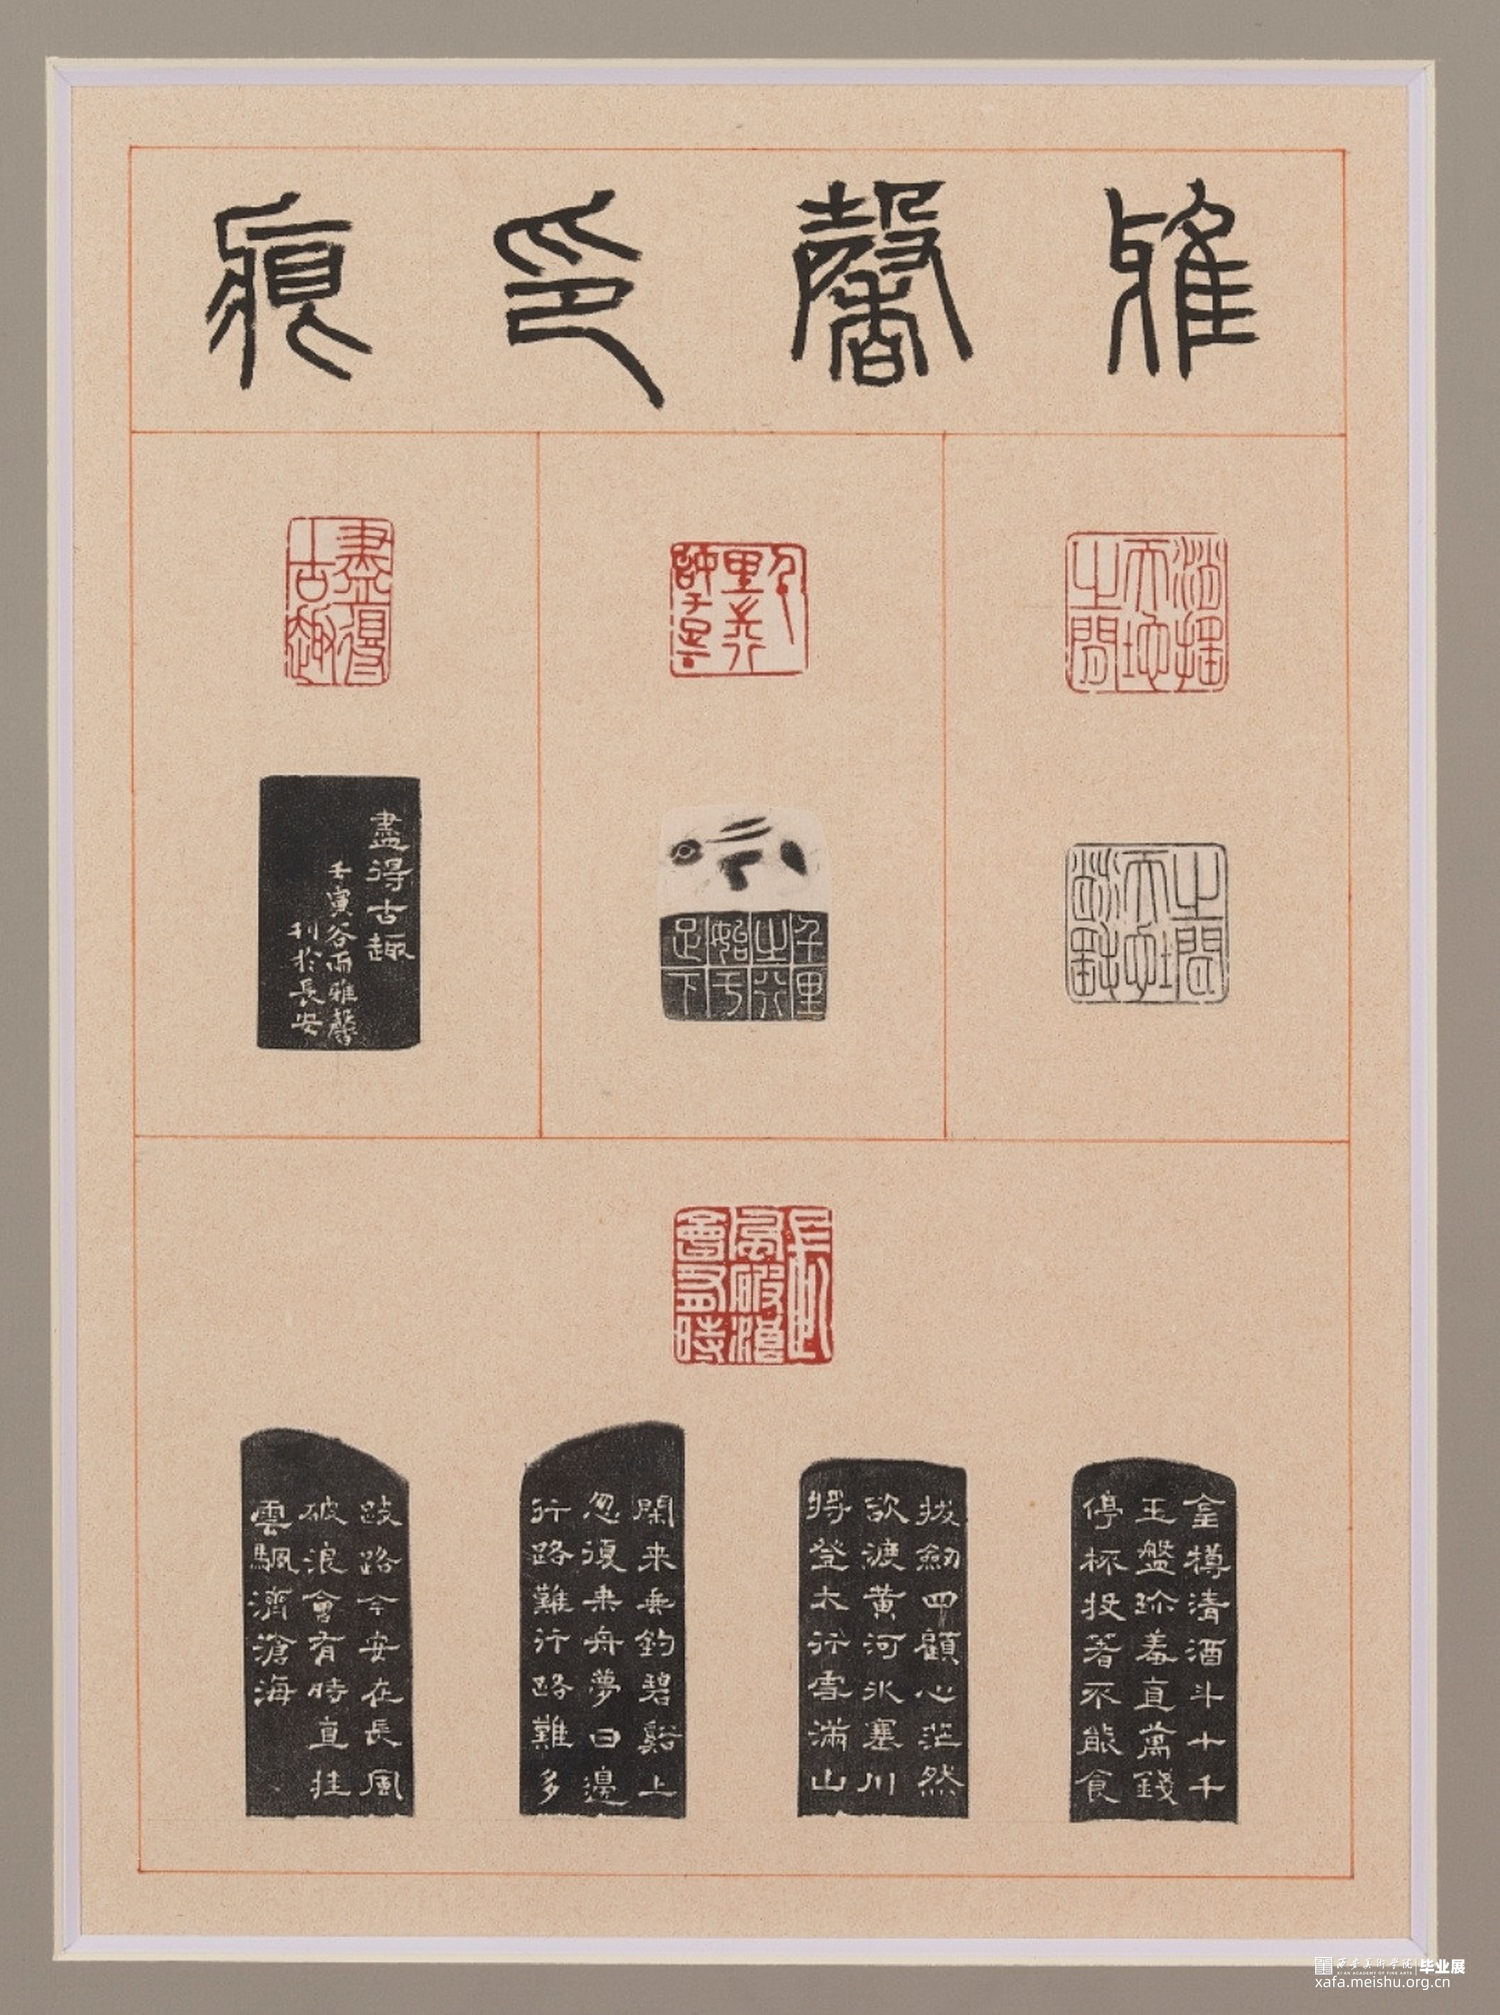 雅馨印痕
消搖
天地
之閒
千里
之行
始于
足下
盡得
古趣
盡得古趣
壬寅谷雨雅馨
刊於長安
長
風破浪
會有時
金樽清酒斗十千
玉盤珍羞直萬錢
停杯投箸不能食
拔劒四顧心茫然
欲渡黃河氷塞川
將登太行雪滿山
閑来垂釣碧谿上
忽復乘舟夢日邊
行路難行路難多
歧路今安在長風
破浪會有時直挂
雲颿濟滄海
西安美術學院 毕业展
XI'AN ACADEMY OF FINE ARTS
xafa.meishu.org.cn